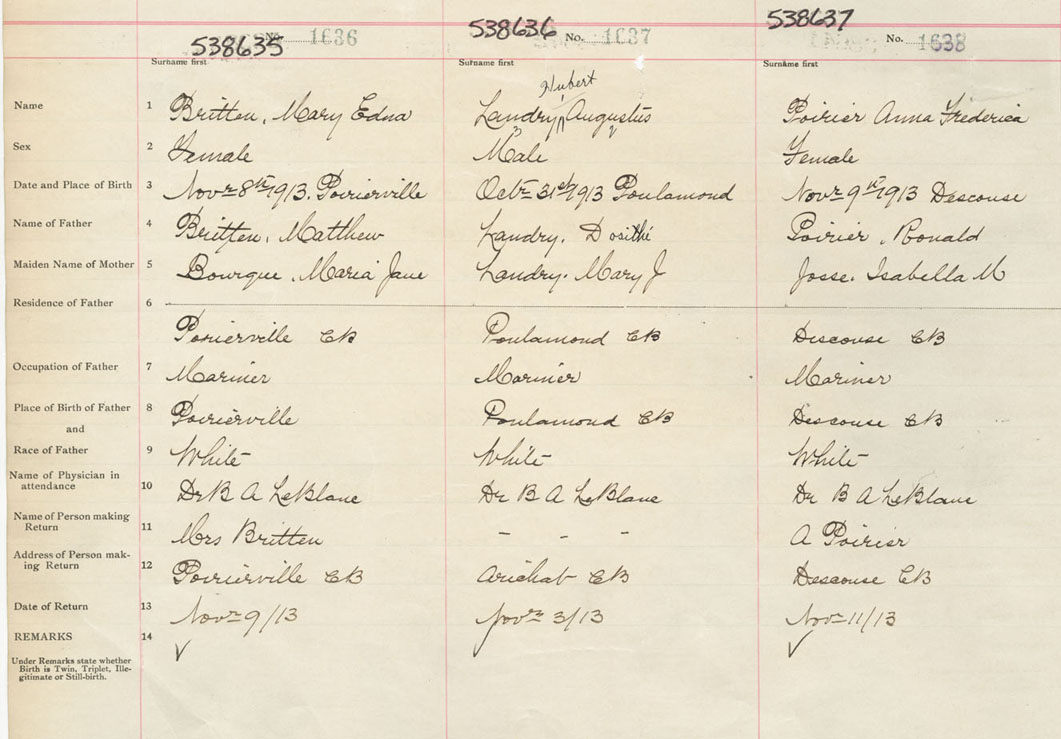 538635 No. 1636 538636 No. 1637 538637 No. 1638
Surname first Surname first Surname first
Hubert
Name 1 Britten, Mary Edna Landry, Augustus Poirier Anna Frederica
Sex 2 Female Male Female
Date and Place of Birth 3 Novr 8th 1913. Poirierville Octr 31st 1913 Poulamond Novr 9th 1913 Descouse
Name of Father 4 Britten, Matthew Landry. Dosithé Poirier, Ronald
Maiden Name of Mother 5 Bourque, Maria Jane Landry. Mary J Josse. Isabella M
Residence of Father 6
Poirierville CB Poulamond CB Descouse CB
Occupation of Father 7 Mariner Mariner Mariner
Place of Birth of Father 8 Poirierville Poulamond CB Descouse CB
and
Race of Father 9 White White White
Name of Physician in
attendance 10 Dr B A LeBlanc Dr B A LeBlanc Dr B A LeBlanc
Name of Person making
Return 11 Mrs Britten - - - A Poirier
Address of Person mak-
ing Return 12 Poirierville CB Arichat CB Descouse CB
Date of Return 13 Novr 9/13 Novr 3/13 Novr 11/13
REMARKS 14
Under Remarks state whether
Birth is Twin, Triplet, Ille-
gitimate or Still-birth.